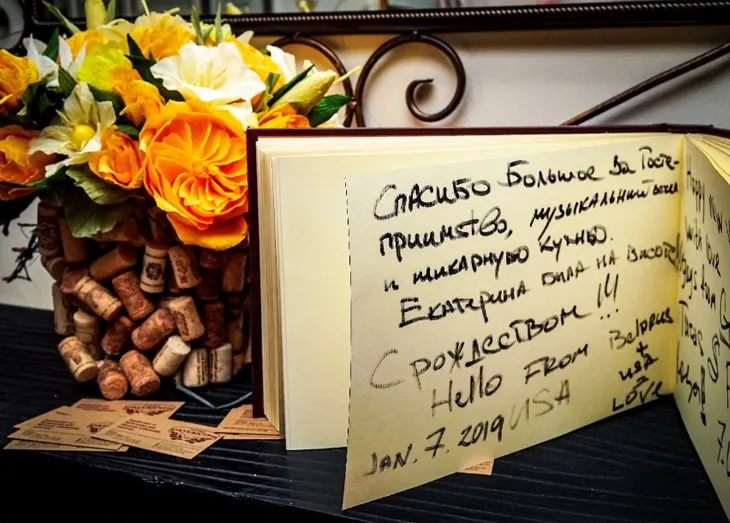 Спасибо Большое за Госте-
приимство, музыкальний вечер
и шикарную кухню.
Екатерина била на висоте!
С рождеством!!!
Hello From Belarus
+
USA
LOVE
JAN. 7. 2019 USA
Happy New
with love
guys from